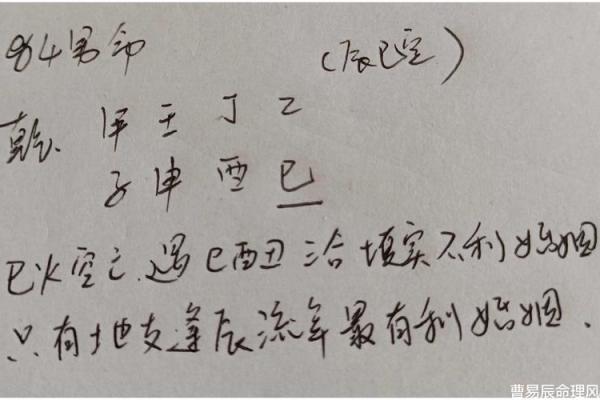 84男命 (辰巳空)
乾、甲壬丁乙
子申酉巳
巳火空亡.遇巳酉丑三合填实不利婚姻
只有地支逢辰流年最有利婚姻.
曹易辰命理风